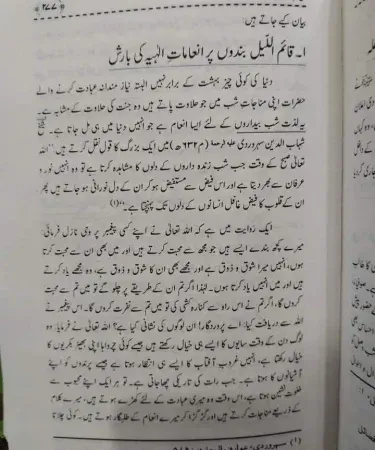 ﴿۲۷۷﴾
بیان کیے جاتے ہیں:
۱۔ قائم اللیل بندوں پر انعاماتِ الٰہیہ کی بارش
دنیا کی کوئی چیز بہشت کے برابر نہیں البتہ نیاز مندانہ عبادت کرنے والے
حضرات اپنی مناجات شب میں جو حلاوت پاتے ہیں وہ جنت کی حلاوت کے مشابہ ہے۔
یہ لذت شب بیداروں کے لئے ایسا انعام ہے جو انہیں دنیا میں ہی مل جاتا ہے۔ شیخ
شہاب الدین سہروردی (م ۶۳۲ھ) میں ایک بزرگ کا قول نقل کرتے ہیں: ”اللہ
تعالیٰ صبح کے وقت جب شب زندہ داروں کے دلوں کا مشاہدہ کرتا ہے تو وہ انہیں نور و
عرفان سے بھر دیتا ہے اور اس فیض سے مستفیض ہو کر ان کے دل نورانی ہو جاتے ہیں پھر
ان کے قلوب کا فیض غافل انسانوں کے دلوں تک پہنچتا ہے۔“(۱)
ایک روایت میں ہے کہ اللہ تعالیٰ نے اپنے کسی پیغمبر پر وحی نازل فرمائی:
میرے کچھ بندے ایسے ہیں جو مجھ سے محبت کرتے ہیں اور میں بھی ان سے محبت کرتا
ہوں، انہیں میرا شوق و ذوق ہے اور مجھے بھی ان کا شوق و ذوق ہے، وہ مجھے یاد کرتے
ہیں اور میں انہیں یاد کرتا ہوں۔ لہٰذا اگر تم ان کے طریقے پر چلو گے تو میں تم سے محبت
کروں گا، اگر تم نے اس راہ سے کنارہ کشی کی تو میں تم سے نفرت کروں گا۔ اس پیغمبر نے
اللہ سے دریافت کیا: اے پروردگار! ان لوگوں کی نشانی کیا ہے؟ اللہ تعالیٰ نے فرمایا: وہ
لوگ دن کے وقت سایوں کا ایسے ہی خیال رکھتے ہیں جیسے کوئی چرواہا اپنی بھیڑ بکریوں کا
خیال رکھتا ہے، انہیں غروب آفتاب کا ایسے ہی انتظار ہوتا ہے جیسے پرندوں کو اپنے
آشیانوں کا ہوتا ہے۔ جب رات کی تاریکی چھا جاتی ہے۔ تو ہر ایک اپنے محبوب سے
خلوت نشین ہوتا ہے، اس وقت وہ میری عبادت کے لئے کھڑے ہوتے ہیں، میرے کلام
کے ذریعے مناجات کرتے ہیں اور گڑگڑا کر میرے انعام کے طلبگار ہوتے ہیں۔ کوئی چلاتا
(۱) سہروردی،